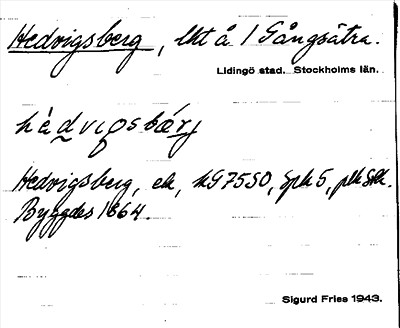 Hedvigsberg, lht å 1 Gångsätra.
Lidingö stad. Stockholms län.
hèdvigsbárj
Hedvigsberg, ek, hG7550, Spk 5, plk Sth.
Byggdes 1864.
Sigurd Fries 1943.